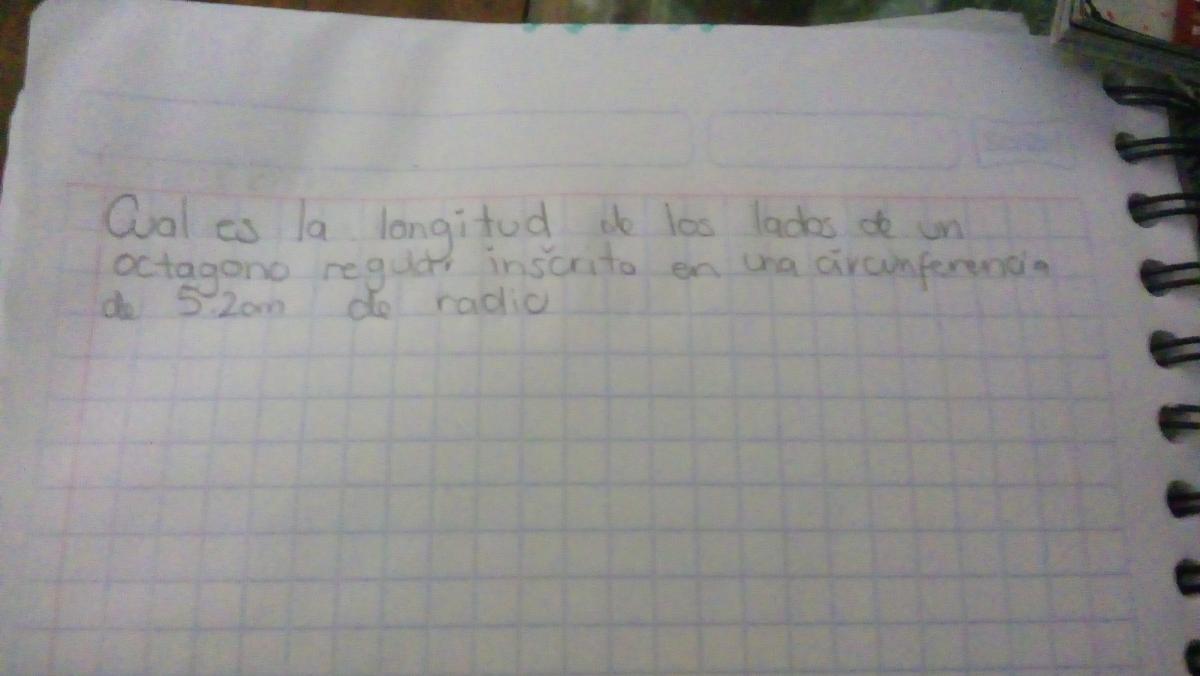 Cual es la longitud de los lados de un
octagono regular inscrito en una circunferencia
de 5.2cm de radio